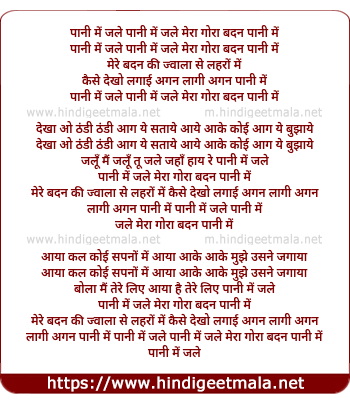 पानी में जले पानी में जले मेरा गोरा बदन पानी में
पानी में जले पानी में जले मेरा गोरा बदन पानी में
मेरे बदन की ज्वाला से लहरों में
कैसे देखो लगाई अगन लागी अगन पानी में
पानी में जले पानी में जले मेरा गोरा बदन पानी में
www.hindigeetmala.net m.hindigeetmala.net
देखा ओ ठंडी ठंडी आग ये सताये आये आके कोई आग ये बुझाये
देखा ओ ठंडी ठंडी आग ये सताये आये आके कोई आग ये बुझाये
जलूँ मैं जलूँ तू जले जहाँ हाय रे पानी में जले
पानी में जले मेरा गोरा बदन पानी में
मेरे बदन की ज्वाला से लहरों में कैसे देखो लगाई अगन लागी अगन
लागी अगन पानी में पानी में जले पानी में
जले मेरा गोरा बदन पानी में
www.hindigeetmala.net m.hindigeetmala.net
आया कल कोई सपनों में आया आके आके मुझे उसने जगाया
आया कल कोई सपनों में आया आके आके मुझे उसने जगाया
बोला मैं तेरे लिए आया है तेरे लिए पानी में जले
पानी में जले मेरा गोरा बदन पानी में
मेरे बदन की ज्वाला से लहरों में कैसे देखो लगाई अगन लागी अगन
लागी अगन पानी में पानी में जले पानी में जले मेरा गोरा बदन पानी में
पानी में जले
https://www.hindigeetmala.net